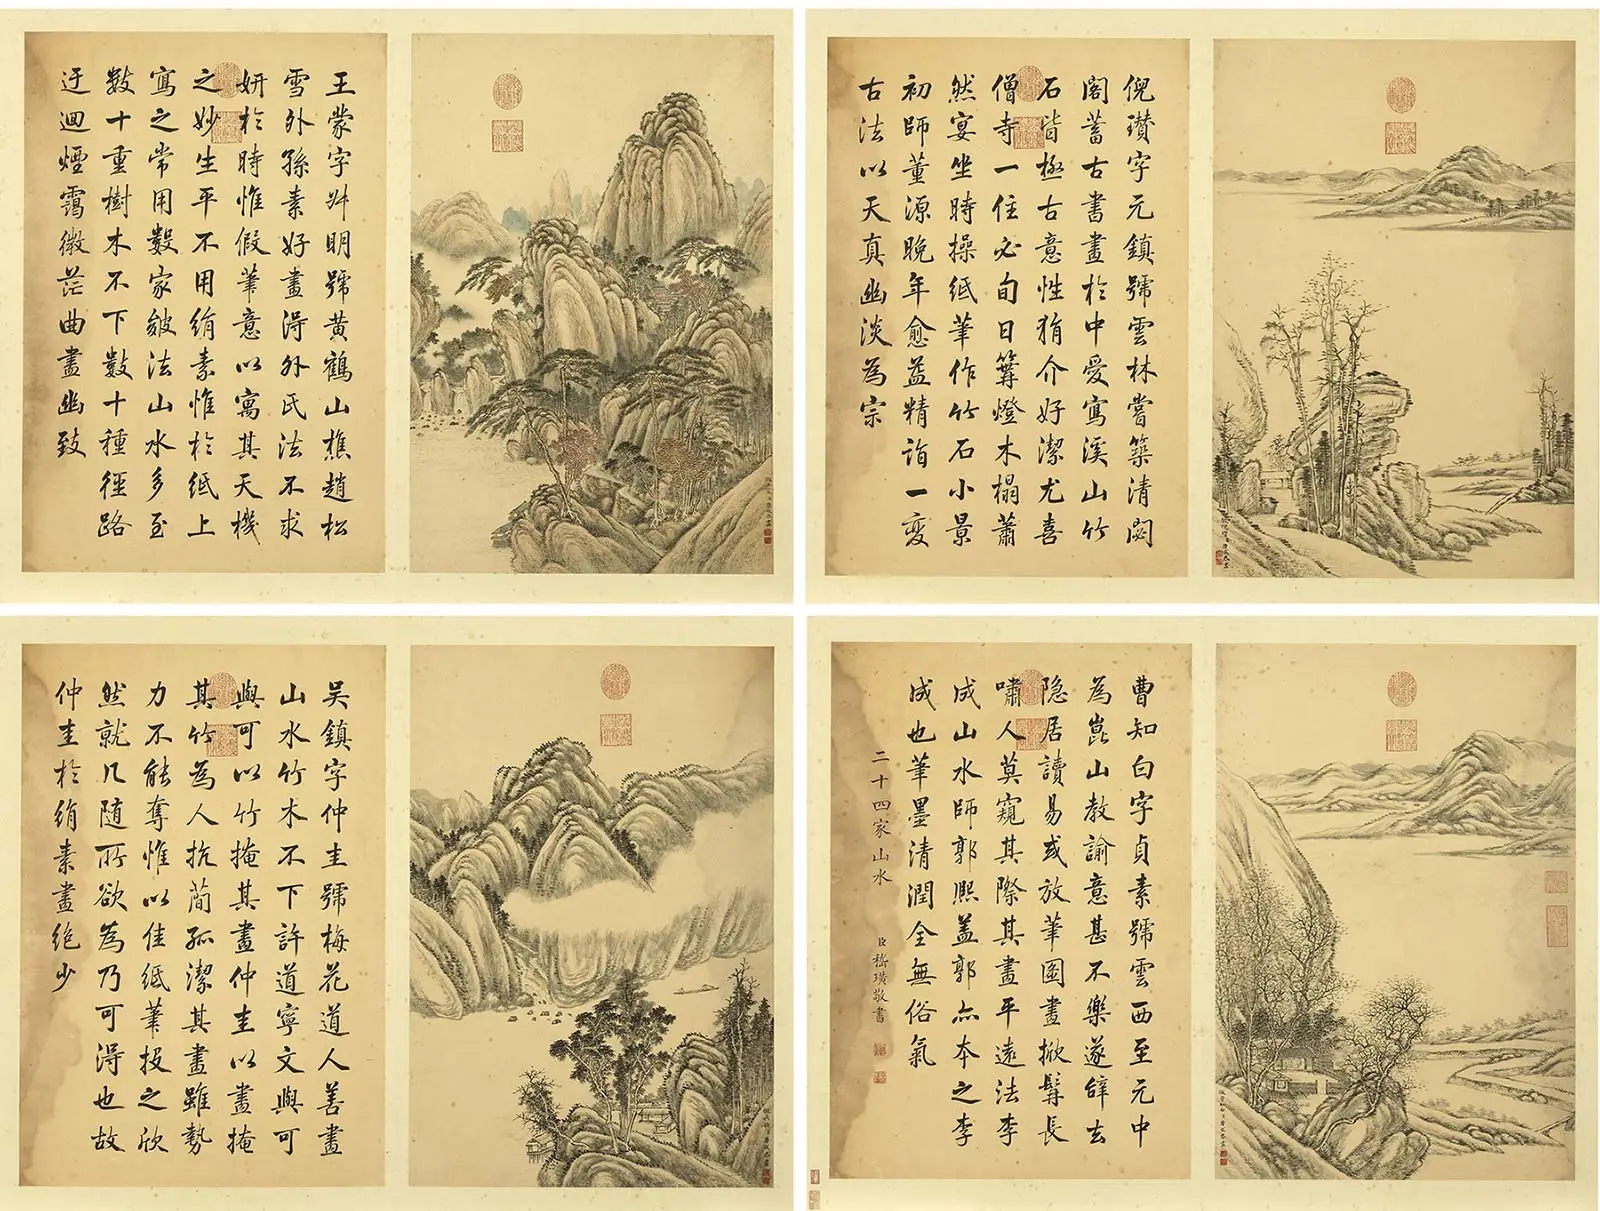 王蒙字叔明號黃鶴山樵趙松
雪外孫素好畫得外氏法不求
妍於時惟假筆意以寓其天機
之妙生平不用絹素惟於紙上
寫之常用數家皴法山水多至
數十重樹木不下數十種徑路
迂迴煙靄微茫曲盡幽致
倪瓚字元鎮號雲林嘗築清閟
閣蓄古書畫於中愛寫溪山竹
石皆極古意性狷介好潔尤喜
僧寺一住必旬日篝燈木榻蕭
然宴坐時操紙筆作竹石小景
初師董源晚年愈益精詣一變
古法以天真幽淡為宗
吴鎮字仲圭號梅花道人善畫
山水竹木不下許道寧文與可
與可以竹掩其畫仲圭以畫掩
其竹為人抗簡孤潔其畫雖勢
力不能奪惟以佳紙筆投之欣
然就几随所欲為乃可得也故
仲圭於絹素畫絶少
曹知白字貞素號雲西至元中
為崑山教諭意甚不樂遂辭去
隐居讀易或放筆圖畫掀髯長
嘯人莫窺其際其畫平遠法李
成山水師郭熙蓋郭亦本之李
成也筆墨清潤全無俗氣
二十四家山水
臣嵇璜敬書